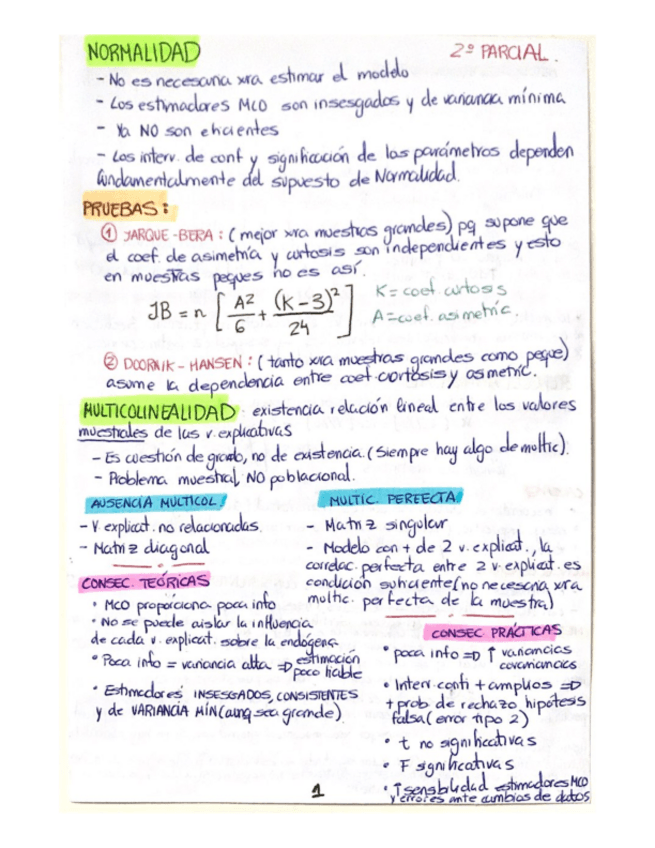 NORMALIDAD
2º PARCIAL.
- No es necesaria xra estimar el modelo
- Los estimadores MCO son insesgados y de varianza mínima
- Ya NO son eficientes
- Los interv. de conf y significación de los parámetros dependen
fundamentalmente del supuesto de Normalidad.
PRUEBAS:
① JARQUE-BERA: (mejor xra muestras grandes) pq supone que
el coef. de asimetría y curtosis son independientes y esto
en muestras peques no es así.
JB = n [ A²/6 + (K-3)²/24 ]
K = coef. curtosis
A = coef. asimetríc.
② DOORNIK-HANSEN: (tanto xra muestras grandes como peque)
asume la dependencia entre coef. curtosis y asimetríc.
MULTICOLINEALIDAD: existencia relación lineal entre los valores
muestrales de las v. explicativas
- Es cuestión de grado, no de existencia. (Siempre hay algo de multic).
- Problema muestral, NO poblacional.
AUSENCIA MULTICOL/
- V. explicat. no relacionadas.
- Matriz diagonal
MULTIC. PERFECTA/
- Matriz singular
- Modelo con + de 2 v. explicat., la
correlac. perfecta entre 2 v. explicat. es
condición suficiente (no necesaria xra
multic. perfecta de la muestra)
CONSEC. TEÓRICAS
• MCO proporciona poca info
• No se puede aislar la influencia
de cada v. explicat. sobre la endógena
• Poca info = varianza alta => estimación
poco fiable
• Estimadores INSESGADOS, CONSISTENTES
y de VARIANCIA MÍN (aunq sea grande).
CONSEC. PRÁCTICAS
• poca info => ↑ variancias
covariancias
• Interv. conf. + amplios =>
+ prob. de rechazo hipótesis
falsa (error tipo 2)
• t no significativas
• F significativas
• ↑ sensibilidad estimadores MCO
y errores ante cambios de datos
1